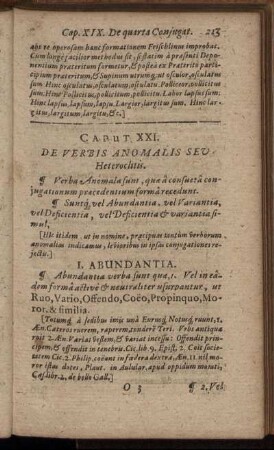 Cap. XIX. De quarta Conjugat. 213
que re operosam hunc formationem Frischlinus improbat.
Cum longe facilior methodus sit, si statim à præsenti Depo-
nentium præteritum formetur, & postea ex Præteriti parti-
cipium præteritum, & Supinum utrumq; ut osculor, osculatus
sum Hinc osculatus, osculatum, osculatu. Polliceor, pollicitus
sum. Hinc Pollicitus, pollicitum, pollicitu. Labor lapsus sum.
Hinc lapsus, lapsum, lapsu. Largior, largitus sum. Hinc lar-
gitus, largitum, largitu, &c.]
CAPUT XXI.
DE VERBIS ANOMALIS SEU
Heteroclitis.
¶ Verba Anomala sunt, quæ à consuetâ con-
jugationum præcedentium formâ recedunt.
¶ Suntq; vel Abundantia, vel Variantia,
vel Deficientia, vel Deficientia & variantia si-
mul,
[Hîc itidem, ut in nomine, præcipua tantùm verborum
anomalia indicamus, levioribus in ipsas conjugationes re-
jectis.]
I. ABUNDANTIA.
¶ Abundantia verba sunt quæ, 1. Vel in eâ-
dem formâ activè & neutraliter usurpantur, ut
Ruo, Vario, Offendo, Coëo, Propinquo, Mo-
ror, & similia.
[Totumq; à sedibus imis unà Eurusq; Notusq; ruunt, 1.
Æn. Cæteros ruerem, raperem, tunderẽ Teri. Vrbs antiqua
ruit 2. Æn. Variat vestem, & variat incessu: Offendit prin-
cipem, & offendit in tenebris. Cic. lib. 9. Epist. 2. Coit socie-
tatem Cic. 2. Philip. coëunt in fœdera dextræ, Æn. 11. nil mo-
ror istas dotes, Plaut. in Aulular. apud oppidum morati,
Cæs. libr. 2. de bello Gall.]
O 3 ¶ 2. Vel